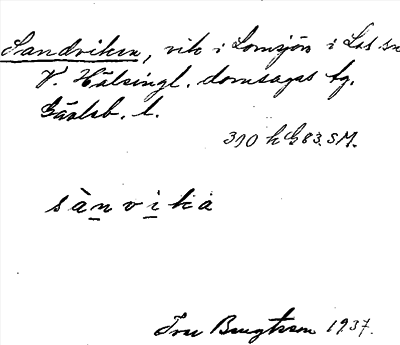 Sandviken, vik i Lomsjön i Los sn
V. Hälsingl. domsagas tg.
Gävleb. l.
310 h G83.SM.
sànvika
Ivar Bengtsson 1937.